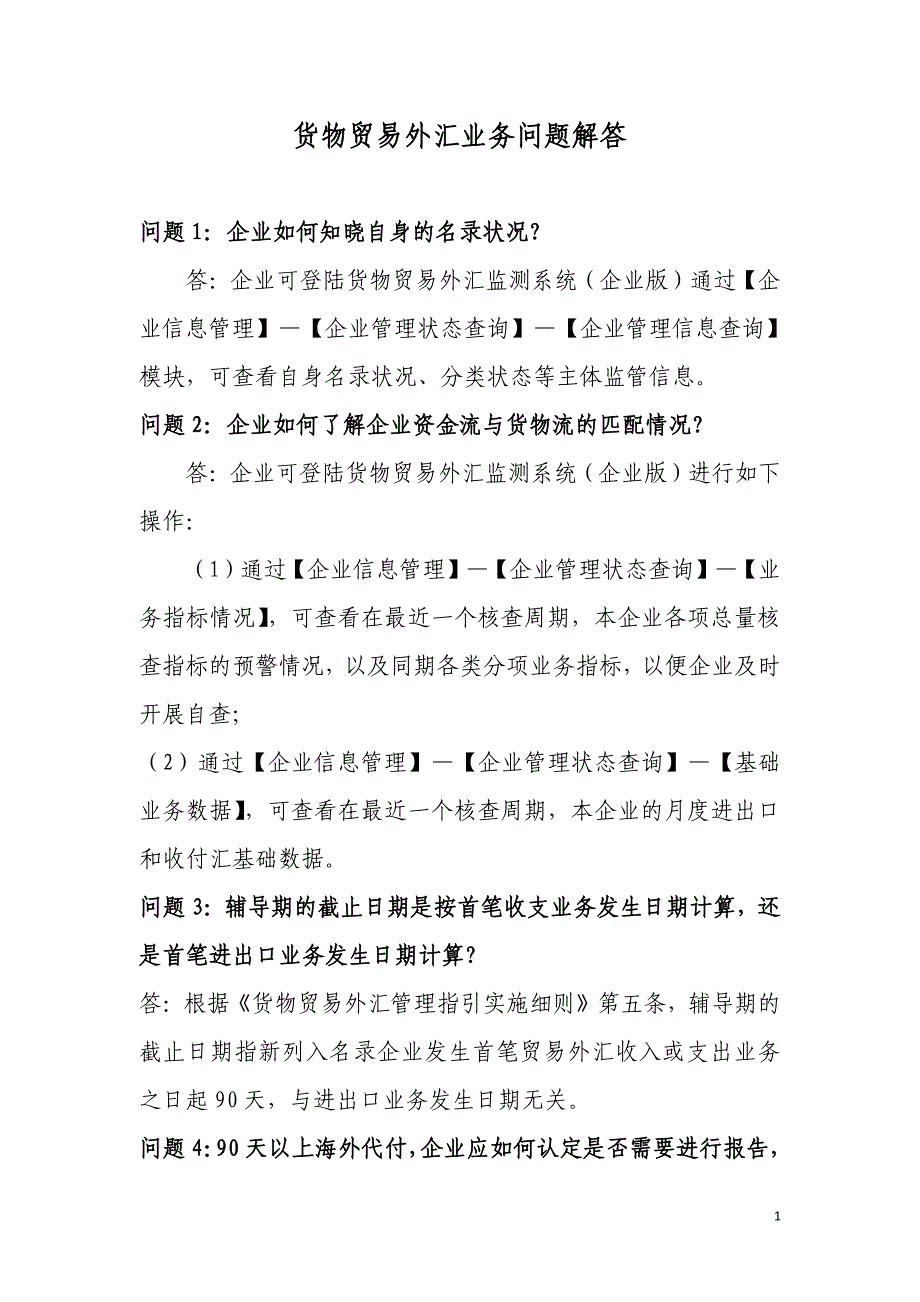 货物贸易外汇业务问题解答
问题 1：企业如何知晓自身的名录状况？
答：企业可登陆货物贸易外汇监测系统（企业版）通过【企
业信息管理】—【企业管理状态查询】—【企业管理信息查询】
模块，可查看自身名录状况、分类状态等主体监管信息。
问题 2：企业如何了解企业资金流与货物流的匹配情况？
答：企业可登陆货物贸易外汇监测系统（企业版）进行如下
操作：
（1）通过【企业信息管理】—【企业管理状态查询】—【业
务指标情况】，可查看在最近一个核查周期，本企业各项总量核
查指标的预警情况，以及同期各类分项业务指标，以便企业及时
开展自查；
（2）通过【企业信息管理】—【企业管理状态查询】—【基础
业务数据】，可查看在最近一个核查周期，本企业的月度进出口
和收付汇基础数据。
问题 3：辅导期的截止日期是按首笔收支业务发生日期计算，还
是首笔进出口业务发生日期计算？
答：根据《货物贸易外汇管理指引实施细则》第五条，辅导期的
截止日期指新列入名录企业发生首笔贸易外汇收入或支出业务
之日起 90 天，与进出口业务发生日期无关。
问题 4：90 天以上海外代付，企业应如何认定是否需要进行报告，
1